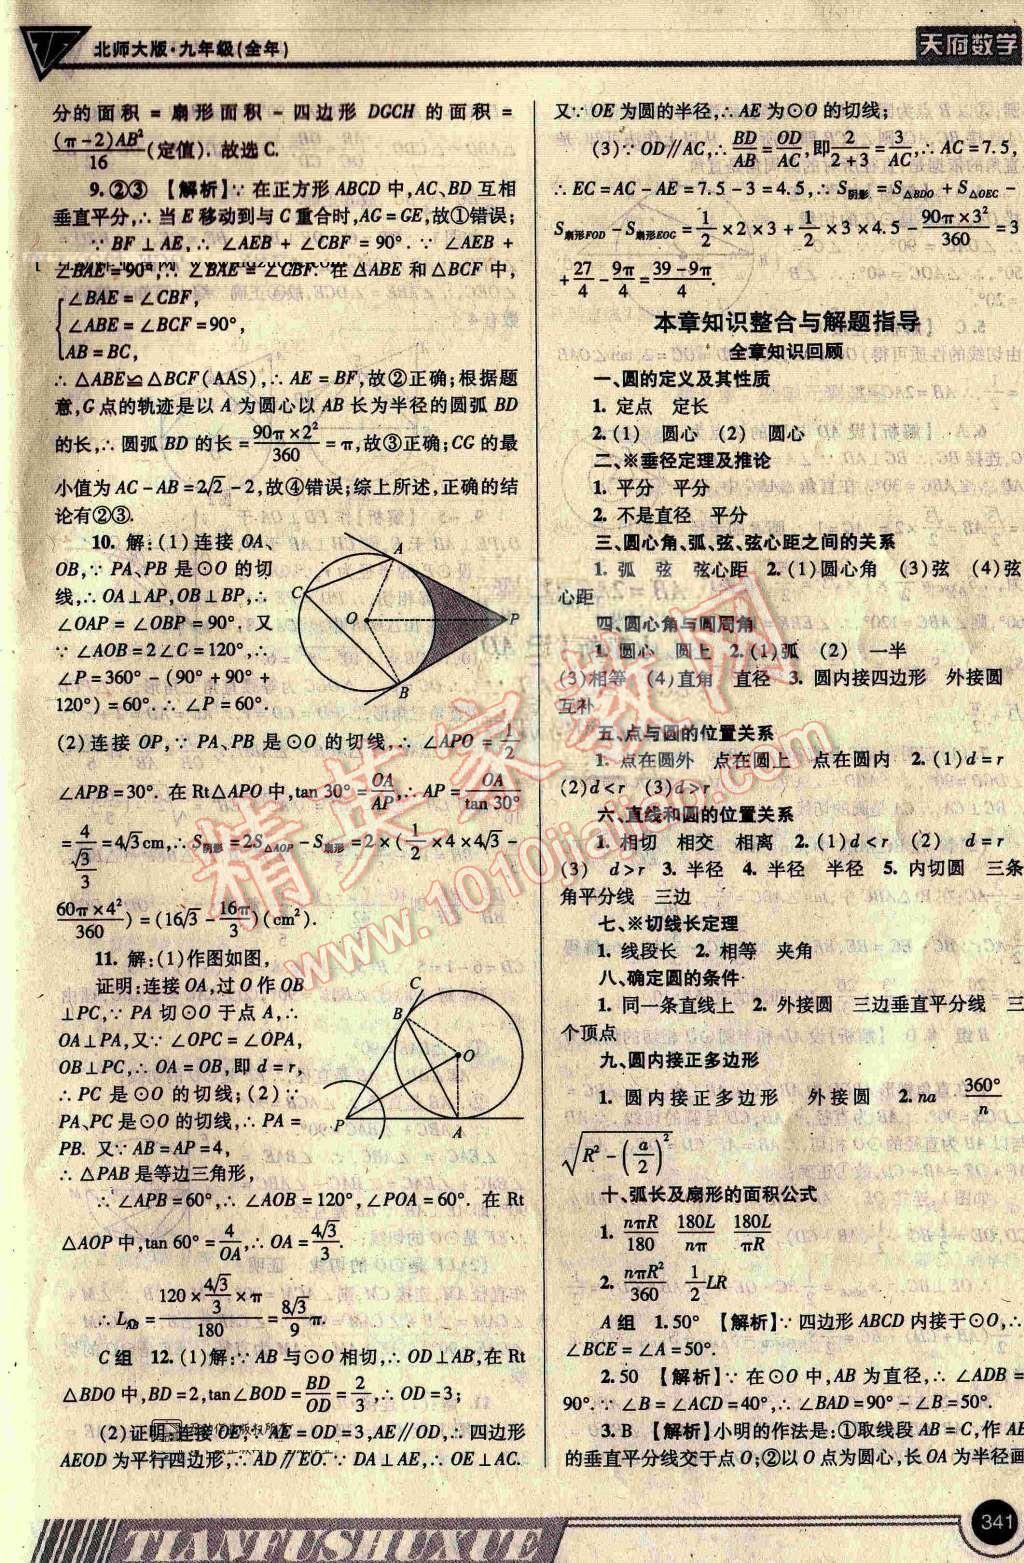 北师大版·九年级(全年)
天府数学
分的面积 = 扇形面积 - 四边形 DGCH 的面积 =
(π-2)AB²/16 (定值). 故选 C.
9. ②③ 【解析】∵ 在正方形 ABCD 中, AC、BD 互相
垂直平分, ∴ 当 E 移动到与 C 重合时, AG = GE, 故①错误;
∵ BF ⊥ AE, ∴ ∠AEB + ∠CBF = 90°. ∵ ∠AEB +
∠BAE = 90°, ∴ ∠BAE = ∠CBF. 在 △ABE 和 △BCF 中,
∠BAE = ∠CBF,
∠ABE = ∠BCF = 90°,
AB = BC,
∴ △ABE ≌ △BCF(AAS), ∴ AE = BF, 故②正确; 根据题
意, G 点的轨迹是以 A 为圆心以 AB 长为半径的圆弧 BD
的长, ∴ 圆弧 BD 的长 = 90π×2²/360 = π, 故③正确; CG 的最
小值为 AC - AB = 2√2 - 2, 故④错误; 综上所述, 正确的结
论有②③.
10. 解: (1) 连接 OA、
OB, ∵ PA、PB 是 ⊙O 的切
线, ∴ OA⊥AP, OB⊥BP, ∴
∠OAP = ∠OBP = 90°, 又
∵ ∠AOB = 2∠C = 120°, ∴
∠P = 360° - (90° + 90° +
120°) = 60°. ∴ ∠P = 60°.
A
C
O
P
B
(2) 连接 OP, ∵ PA、PB 是 ⊙O 的切线, ∴ ∠APO = 1/2
∠APB = 30°. 在 Rt△APO 中, tan 30° = OA/AP, ∴ AP = OA/tan 30°
= 4/(√3/3) = 4√3 cm, ∴ S阴影 = 2S△AOP - S扇形 = 2×(1/2 ×4×4√3 -
60π×4²/360) = (16√3 - 16π/3)(cm²).
11. 解: (1) 作图如图,
证明: 连接 OA, 过 O 作 OB
⊥PC, ∵ PA 切 ⊙O 于点 A, ∴
OA⊥PA, 又∵ ∠OPC = ∠OPA,
OB⊥PC, ∴ OA = OB, 即 d = r,
∴ PC 是 ⊙O 的切线; (2) ∵
PA、PC 是 ⊙O 的切线, ∴ PA =
PB. 又∵ AB = AP = 4,
∴ △PAB 是等边三角形,
C
B
O
P
A
∴ ∠APB = 60°, ∴ ∠AOB = 120°, ∠POA = 60°. 在 Rt
△AOP 中, tan 60° = 4/OA, ∴ OA = 4√3/3.
∴ L = (120×4√3/3×π)/180 = 8√3/9 π.
C 组 12. (1) 解: ∵ AB 与 ⊙O 相切, ∴ OD⊥AB, 在 Rt
△BDO 中, BD = 2, tan∠BOD = BD/OD = 2/3, ∴ OD = 3;
(2) 证明: 连接 OE, ∵ AE = OD = 3, AE∥OD, ∴ 四边形
AEOD 为平行四边形, ∴ AD∥EO. ∵ DA⊥AE, ∴ OE⊥AC.
又∵ OE 为圆的半径, ∴ AE 为 ⊙O 的切线;
(3) ∵ OD∥AC, ∴ BD/AB = OD/AC, 即 2/(2+3) = 3/AC, ∴ AC = 7.5,
∴ EC = AC - AE = 7.5 - 3 = 4.5, ∴ S阴影 = S△BDO + S△OEC -
S扇形FOD - S扇形EOG = 1/2 ×2×3 + 1/2 ×3×4.5 - 90π×3²/360 = 3
+ 27/4 - 9π/4 = (39-9π)/4.
本章知识整合与解题指导
全章知识回顾
一、圆的定义及其性质
1. 定点 定长
2. (1) 圆心 (2) 圆心
二、※垂径定理及推论
1. 平分 平分
2. 不是直径 平分
三、圆心角、弧、弦、弦心距之间的关系
1. 弧 弦 弦心距 2. (1)圆心角 (3)弦 (4)弦
心距
四、圆心角与圆周角
1. 圆心 圆上 2. (1)弧 (2) 一半
(3)相等 (4)直角 直径 3. 圆内接四边形 外接圆
互补
五、点与圆的位置关系
1. 点在圆外 点在圆上 点在圆内 2. (1) d = r
(2) d < r (3) d > r
六、直线和圆的位置关系
1. 相切 相交 相离 2. (1) d < r (2) d = r
(3) d > r 3. 半径 4. 半径 半径 5. 内切圆 三条
角平分线 三边
七、※切线长定理
1. 线段长 2. 相等 夹角
八、确定圆的条件
1. 同一条直线上 2. 外接圆 三边垂直平分线 三
个顶点
九、圆内接正多边形
1. 圆内接正多边形 外接圆 2. na 360°/n
√(R² - (a/2)²)
十、弧长及扇形的面积公式
1. nπR/180 180L/nπ 180L/πR
2. nπR²/360 1/2 LR
A 组 1. 50° 【解析】∵ 四边形 ABCD 内接于 ⊙O, ∴
∠BCE = ∠A = 50°.
2. 50 【解析】∵ 在 ⊙O 中, AB 为直径, ∴ ∠ADB =
90°. ∵ ∠B = ∠ACD = 40°, ∴ ∠BAD = 90° - ∠B = 50°.
3. B 【解析】小明的作法是: ①取线段 AB = C, 作 AB
的垂直平分线交于点 O; ②以 O 点为圆心, 长 OA 为半径画
精英家教网
www.1010jiajiao.com
341
TIANFUSHUXUE